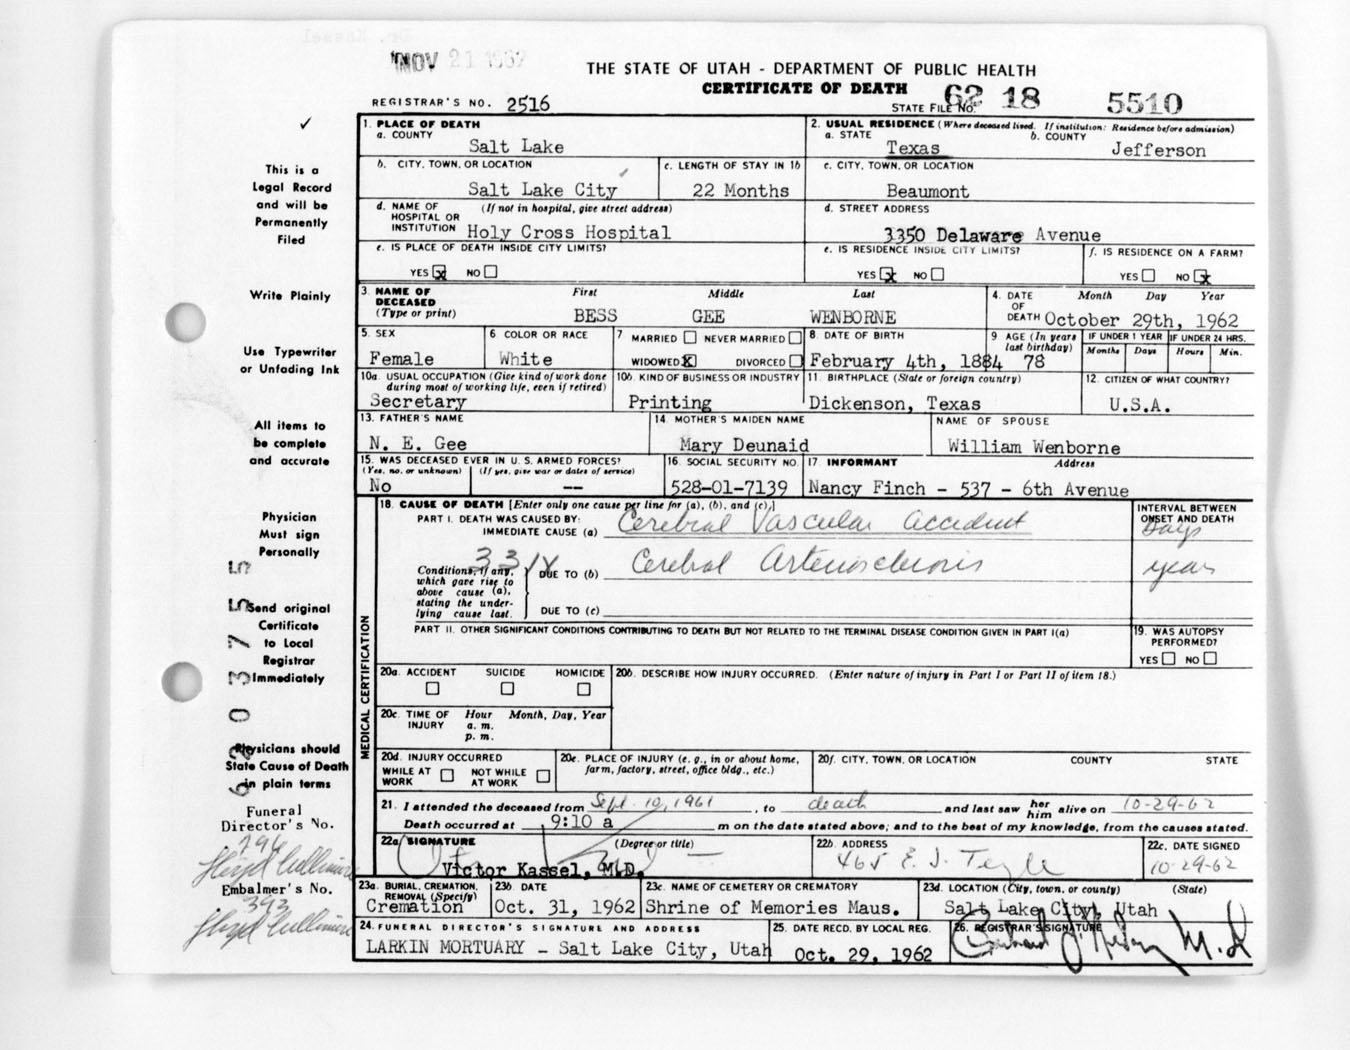 NOV 21 1962
THE STATE OF UTAH - DEPARTMENT OF PUBLIC HEALTH
CERTIFICATE OF DEATH
REGISTRAR'S NO. 2516
STATE FILE NO. 62 18 5510
This is a
Legal Record
and will be
Permanently
Filed
Write Plainly
Use Typewriter
or Unfading Ink
All items to
be complete
and accurate
Physician
Must sign
Personally
Send original
Certificate
to Local
Registrar
Immediately
Physicians should
State Cause of Death
in plain terms
Funeral
Director's No.
Embalmer's No.
393
1. PLACE OF DEATH
a. COUNTY
Salt Lake
2. USUAL RESIDENCE (Where deceased lived. If institution: Residence before admission)
a. STATE b. COUNTY
Texas Jefferson
b. CITY, TOWN, OR LOCATION
Salt Lake City
c. LENGTH OF STAY IN 1b
22 Months
c. CITY, TOWN, OR LOCATION
Beaumont
d. NAME OF (If not in hospital, give street address)
HOSPITAL OR
INSTITUTION Holy Cross Hospital
d. STREET ADDRESS
3350 Delaware Avenue
e. IS PLACE OF DEATH INSIDE CITY LIMITS?
YES x NO
e. IS RESIDENCE INSIDE CITY LIMITS?
YES x NO
f. IS RESIDENCE ON A FARM?
YES NO x
3. NAME OF First Middle Last
DECEASED
(Type or print) BESS GEE WENBORNE
4. DATE Month Day Year
OF
DEATH October 29th, 1962
5. SEX
Female
6 COLOR OR RACE
White
7 MARRIED NEVER MARRIED
WIDOWED X DIVORCED
8 DATE OF BIRTH
February 4th, 1884
9 AGE (In years
last birthday)
78
IF UNDER 1 YEAR IF UNDER 24 HRS.
Months Days Hours Min.
10a. USUAL OCCUPATION (Give kind of work done
during most of working life, even if retired)
Secretary
10b. KIND OF BUSINESS OR INDUSTRY
Printing
11. BIRTHPLACE (State or foreign country)
Dickenson, Texas
12. CITIZEN OF WHAT COUNTRY?
U.S.A.
13. FATHER'S NAME
N. E. Gee
14. MOTHER'S MAIDEN NAME
Mary Deunaid
NAME OF SPOUSE
William Wenborne
15. WAS DECEASED EVER IN U. S. ARMED FORCES?
(Yes, no, or unknown) (If yes, give war or dates of service)
No --
16. SOCIAL SECURITY NO.
528-01-7139
17. INFORMANT Address
Nancy Finch - 537 - 6th Avenue
MEDICAL CERTIFICATION
18. CAUSE OF DEATH [Enter only one cause per line for (a), (b), and (c).]
PART I. DEATH WAS CAUSED BY:
IMMEDIATE CAUSE (a) Cerebral Vascular Accident
INTERVAL BETWEEN
ONSET AND DEATH
Days
331X
Conditions, if any,
which gave rise to
above cause (a),
stating the under-
lying cause last.
DUE TO (b) Cerebral Arteriosclerosis
years
DUE TO (c)
PART II. OTHER SIGNIFICANT CONDITIONS CONTRIBUTING TO DEATH BUT NOT RELATED TO THE TERMINAL DISEASE CONDITION GIVEN IN PART I(a)
19. WAS AUTOPSY
PERFORMED?
YES NO
20a. ACCIDENT SUICIDE HOMICIDE
20b. DESCRIBE HOW INJURY OCCURRED. (Enter nature of injury in Part I or Part II of item 18.)
20c. TIME OF Hour Month, Day, Year
INJURY a. m.
p. m.
20d. INJURY OCCURRED
WHILE AT NOT WHILE
WORK AT WORK
20e. PLACE OF INJURY (e. g., in or about home,
farm, factory, street, office bldg., etc.)
20f. CITY, TOWN, OR LOCATION COUNTY STATE
21. I attended the deceased from Sept. 10, 1961, to death and last saw her him alive on 10-29-62
Death occurred at 9:10 a m on the date stated above; and to the best of my knowledge, from the causes stated.
22a. SIGNATURE (Degree or title)
Victor Kassel, M.D.
22b. ADDRESS
465 E. S. Temple
22c. DATE SIGNED
10-29-62
23a. BURIAL, CREMATION,
REMOVAL (Specify)
Cremation
23b. DATE
Oct. 31, 1962
23c. NAME OF CEMETERY OR CREMATORY
Shrine of Memories Maus.
23d. LOCATION (City, town, or county) (State)
Salt Lake City, Utah
24. FUNERAL DIRECTOR'S SIGNATURE AND ADDRESS
LARKIN MORTUARY - Salt Lake City, Utah
25. DATE RECD. BY LOCAL REG.
Oct. 29, 1962
26. REGISTRAR'S SIGNATURE
M. D.